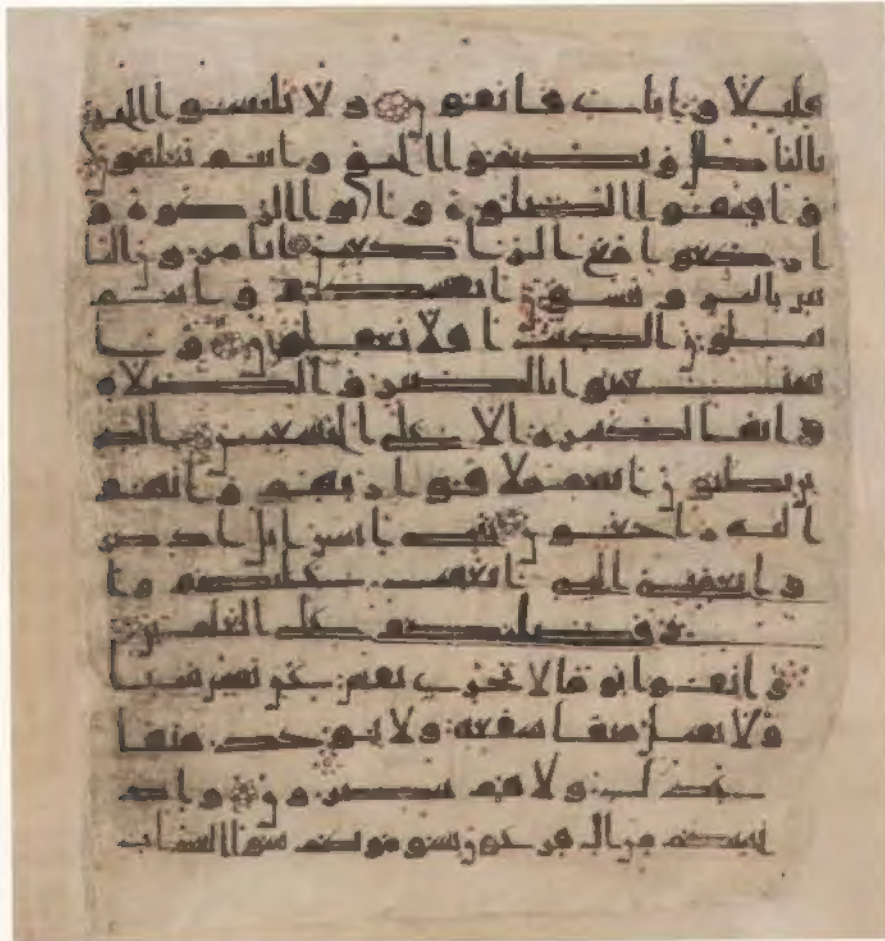 قليلا و اياي فاتقون ولا تلبسوا الحق
بالباطل وتكتموا الحق وانتم تعلمون
واقيموا الصلوة واتوا الزكوة و
اركعوا مع الركعين اتامرون النا
س بالبر وتنسون انفسكم وانتم
تتلون الكتب افلا تعقلون وا
ستعينوا بالصبر والصلاة
وانها لكبيرة الا على الخشعين الذ
ين يظنون انهم ملاقوا ربهم وانهم
اليه راجعون يبني اسرايل اذكر
وا نعمتي التي انعمت عليكم وا
ني فضلتكم على العلمين
واتقوا يوما لا تجزي نفس عن نفس شيئا
ولا يقبل منها شفعة ولا يوخذ منها
عدل ولا هم ينصرون واذ
نجينكم من ال فرعون يسومونكم سوا العذاب